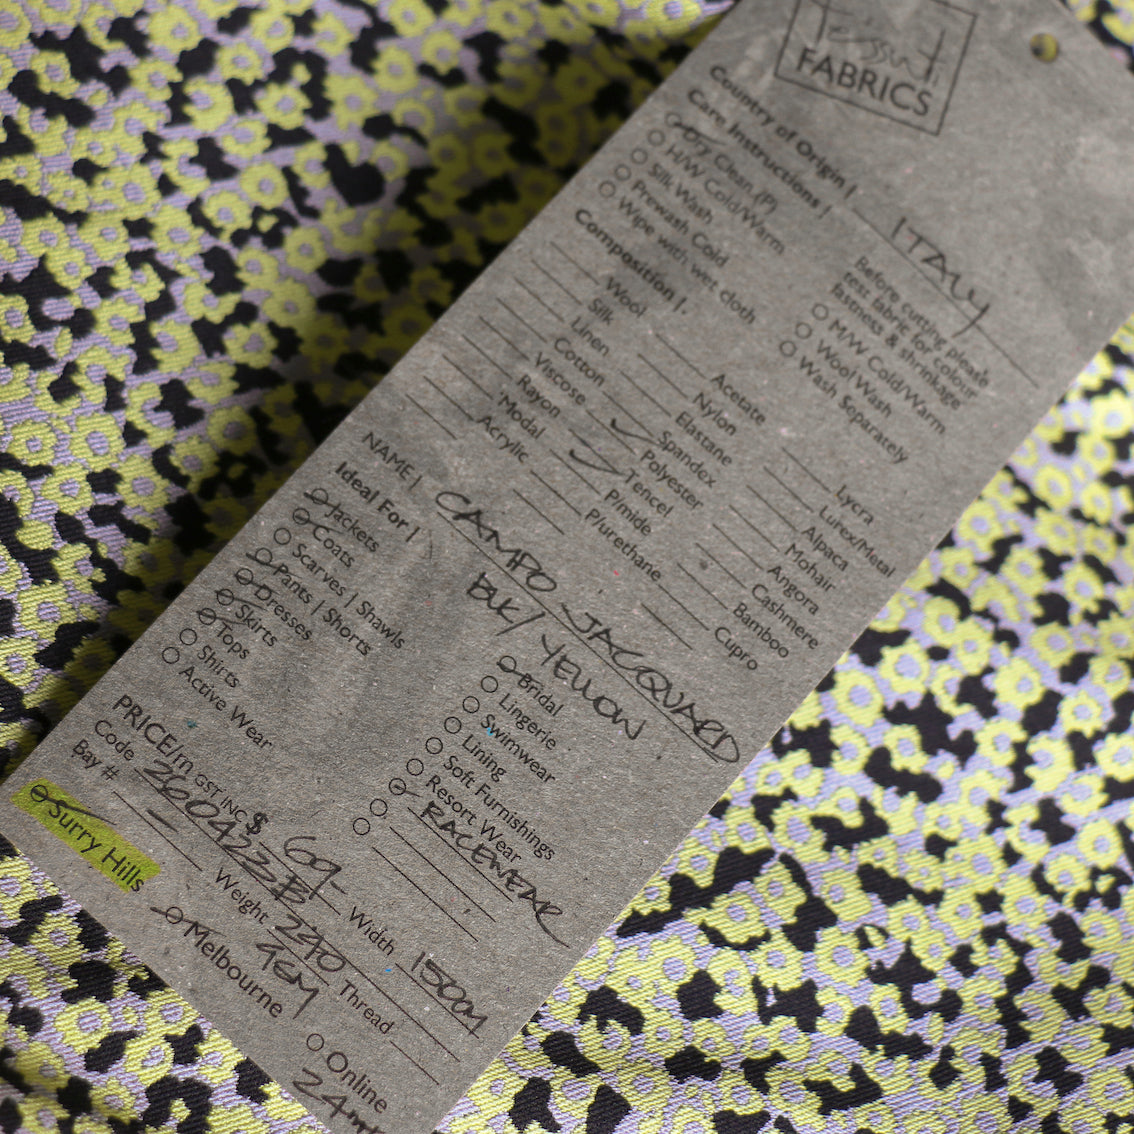 Tessuti
FABRICS
Country of Origin | ITALY
Care Instructions |
Dry Clean (P)
H/W Cold/Warm
Silk Wash
Prewash Cold
Wipe with wet cloth
Before cutting please
test fabric for colour
fastness & shrinkage
M/W Cold/Warm
Wool Wash
Wash Separately
Composition |
Wool
Silk
Linen
Cotton
Viscose
Rayon
Modal
Acrylic
Acetate
Nylon
Elastane
Spandex
Polyester
Tencel
P/mide
P/urethane
Lycra
Lurex/Metal
Alpaca
Mohair
Angora
Cashmere
Bamboo
Cupro
NAME | CAMPO JACQUARD
BLK/ YELLOW
Ideal For |
Jackets
Coats
Scarves | Shawls
Pants | Shorts
Dresses
Skirts
Tops
Shirts
Active Wear
Bridal
Lingerie
Swimwear
Lining
Soft Furnishings
Resort Wear
RACEWEAR
PRICE/m GST INC $ 69- Width 150cm
Code 260423B Weight 240 Thread
Bay # -
Surry Hills
Melbourne
Online